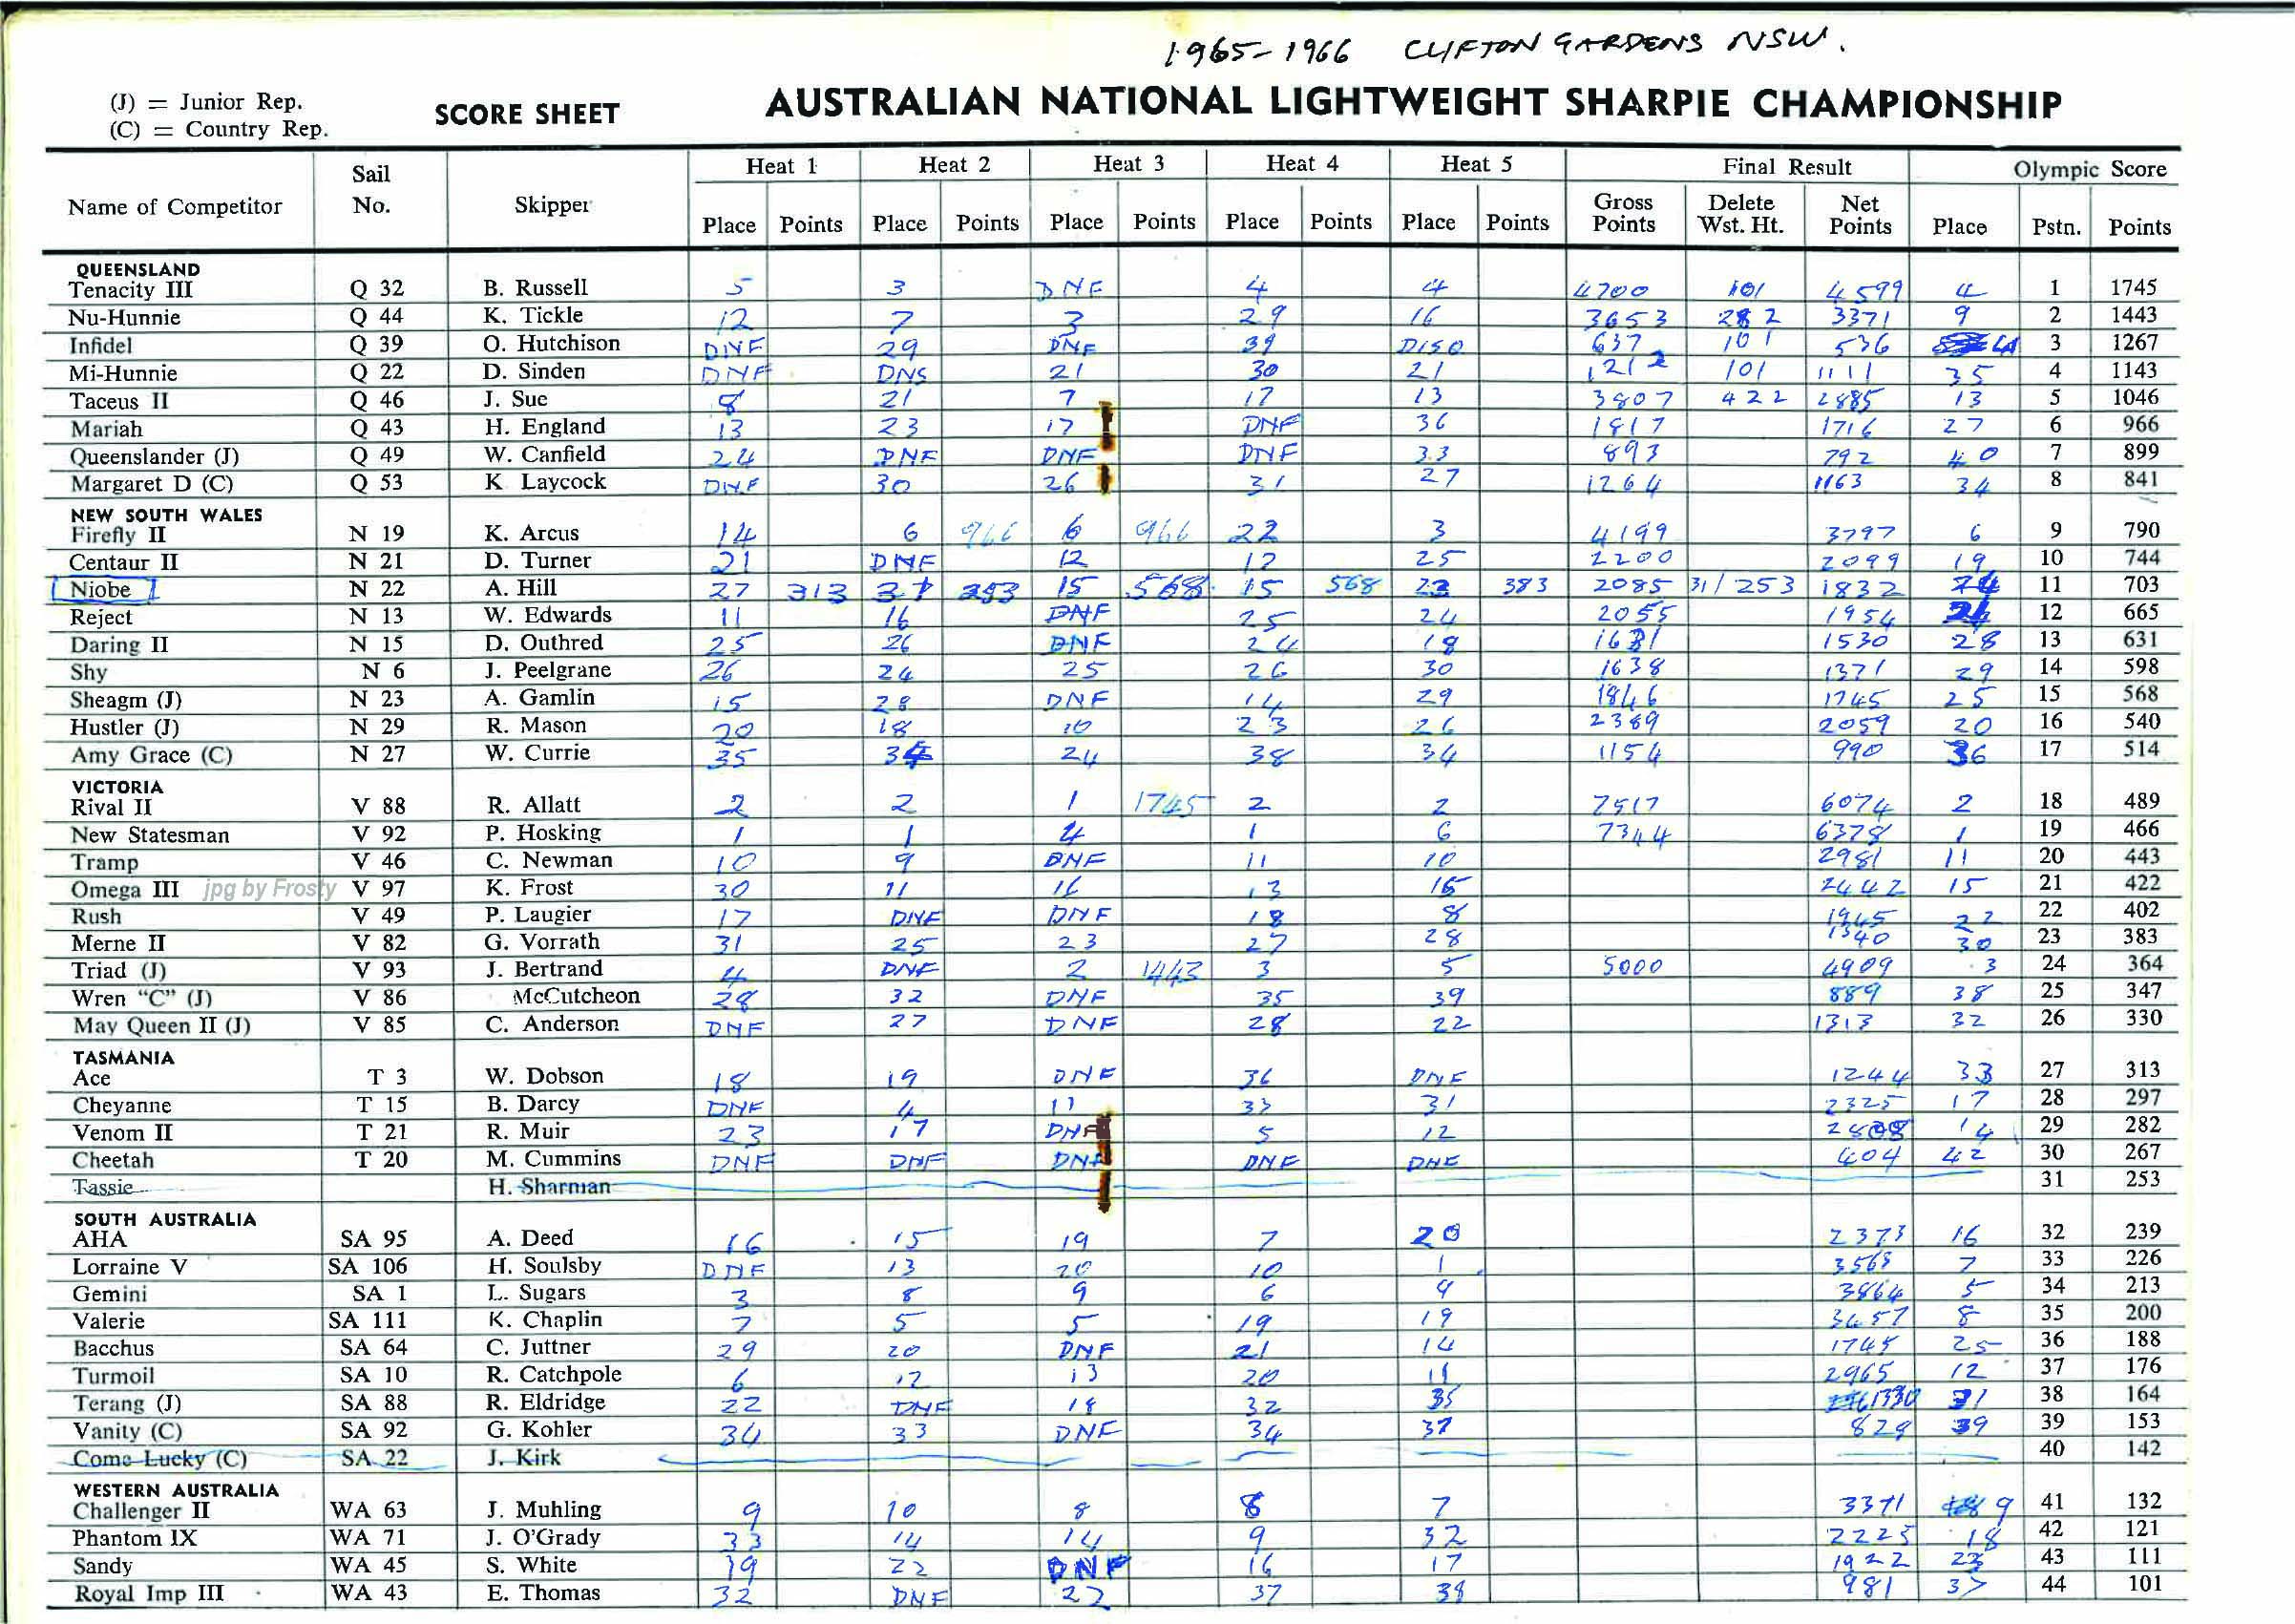 1965-1966 CLIFTON GARDENS NSW.
(J) = Junior Rep.
(C) = Country Rep.
SCORE SHEET AUSTRALIAN NATIONAL LIGHTWEIGHT SHARPIE CHAMPIONSHIP
Name of Competitor Sail No. Skipper Heat 1 Heat 2 Heat 3 Heat 4 Heat 5 Final Result Olympic Score
Place Points Place Points Place Points Place Points Place Points Gross Points Delete Wst. Ht. Net Points Place Pstn. Points
QUEENSLAND
Tenacity III Q 32 B. Russell 5 3 DNF 4 4 4700 101 4599 4 1 1745
Nu-Hunnie Q 44 K. Tickle 12 7 3 29 16 3653 282 3371 9 2 1443
Infidel Q 39 O. Hutchison DNF 29 DNF 39 DISQ 637 101 536 41 3 1267
Mi-Hunnie Q 22 D. Sinden DNF DNS 21 30 21 1212 101 1111 35 4 1143
Taceus II Q 46 J. Sue 8 21 7 17 13 3307 422 2885 13 5 1046
Mariah Q 43 H. England 13 23 17 DNF 36 1817 1716 27 6 966
Queenslander (J) Q 49 W. Canfield 24 DNF DNF DNF 33 893 792 40 7 899
Margaret D (C) Q 53 K Laycock DNF 30 26 31 27 1264 1163 34 8 841
NEW SOUTH WALES
Firefly II N 19 K. Arcus 14 6 966 6 966 22 3 4199 3797 6 9 790
Centaur II N 21 D. Turner 21 DNF 12 12 25 2200 2099 19 10 744
Niobe N 22 A. Hill 27 313 31 253 15 568 15 568 23 383 2085 31/253 1832 24 11 703
Reject N 13 W. Edwards 11 16 DNF 25 24 2055 1954 12 665
Daring II N 15 D. Outhred 25 26 DNF 24 18 1631 1530 28 13 631
Shy N 6 J. Peelgrane 26 24 25 26 30 1638 1371 29 14 598
Sheagm (J) N 23 A. Gamlin 15 28 DNF 14 29 1846 1745 25 15 568
Hustler (J) N 29 R. Mason 20 18 10 23 26 2389 2059 20 16 540
Amy Grace (C) N 27 W. Currie 35 34 24 38 34 1154 990 36 17 514
VICTORIA
Rival II V 88 R. Allatt 2 2 1 1745 2 2 7517 6074 2 18 489
New Statesman V 92 P. Hosking 1 1 4 1 6 7344 6378 1 19 466
Tramp V 46 C. Newman 10 9 DNF 11 10 2981 11 20 443
Omega III jpg by Frosty V 97 K. Frost 30 11 16 13 15 2442 15 21 422
Rush V 49 P. Laugier 17 DNF DNF 18 8 1945 22 22 402
Merne II V 82 G. Vorrath 31 25 23 27 28 1340 30 23 383
Triad (J) V 93 J. Bertrand 4 DNF 2 1443 3 5 5000 4909 3 24 364
Wren "C" (J) V 86 McCutcheon 28 32 DNF 35 39 889 38 25 347
May Queen II (J) V 85 C. Anderson DNF 27 DNF 28 22 1313 32 26 330
TASMANIA
Ace T 3 W. Dobson 18 19 DNF 36 DNF 1244 33 27 313
Cheyanne T 15 B. Darcy DNF 4 11 33 31 2325 17 28 297
Venom II T 21 R. Muir 23 17 DNF 5 12 14 29 282
Cheetah T 20 M. Cummins DNF DNF DNF DNF DNF 404 42 30 267
Tassie H. Sharman 31 253
SOUTH AUSTRALIA
AHA SA 95 A. Deed 16 15 19 7 20 2373 16 32 239
Lorraine V SA 106 H. Soulsby DNF 13 20 10 1 3565 7 33 226
Gemini SA 1 L. Sugars 3 8 9 6 9 3864 5 34 213
Valerie SA 111 K. Chaplin 7 5 5 19 19 3457 8 35 200
Bacchus SA 64 C. Juttner 29 20 DNF 21 14 1745 25 36 188
Turmoil SA 10 R. Catchpole 6 12 13 20 11 2965 12 37 176
Terang (J) SA 88 R. Eldridge 22 DNF 18 32 35 1330 31 38 164
Vanity (C) SA 92 G. Kohler 34 33 DNF 34 37 829 39 39 153
Come Lucky (C) SA 22 J. Kirk 40 142
WESTERN AUSTRALIA
Challenger II WA 63 J. Muhling 9 10 8 8 7 3371 9 41 132
Phantom IX WA 71 J. O'Grady 33 14 14 9 32 2225 18 42 121
Sandy WA 45 S. White 19 22 DNF 16 17 1922 23 43 111
Royal Imp III WA 43 E. Thomas 32 DNF 22 37 38 981 37 44 101